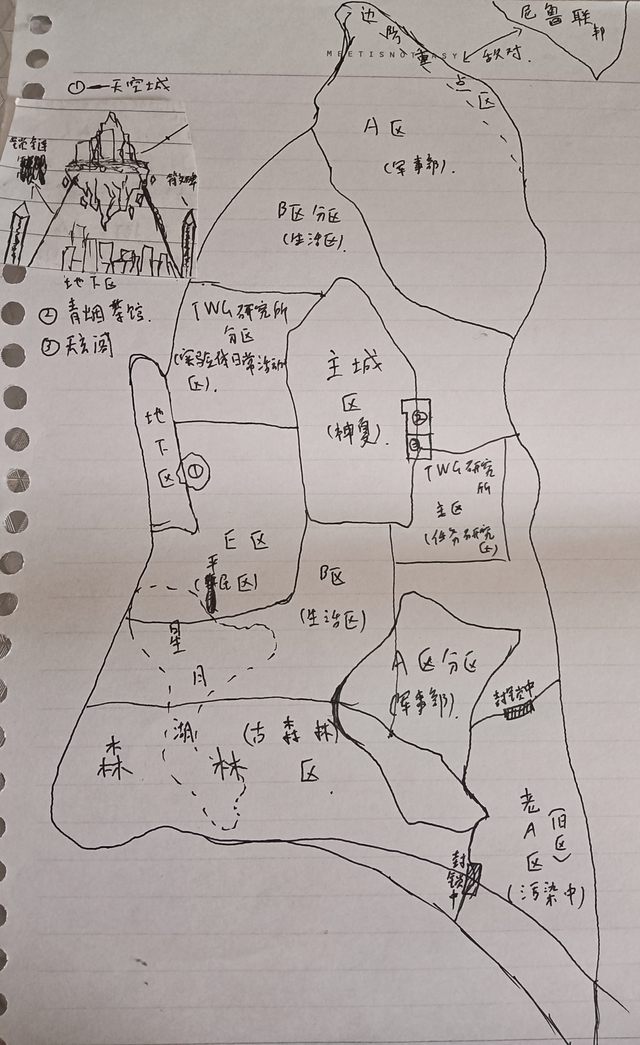 尼鲁联邦
敌对
边防重点区
MEETISNOTEASY
A区
(军事部)
①—天空城
锁链
符文碑
地下区
②青烟茶馆
③天玄阁
B区分区
(生活区)
TWG研究所
分区
(实验续日常活动
区)
主城
区
(神夏)
②
③
地下区
①
TWG研究
所
主区
(任务研究
区)
E区
(平民区)
B区
(生活区)
星月湖
A区分区
(军事部)
封锁中
森林区
(古森林)
老A区
(旧区)
(污染中)
封锁中